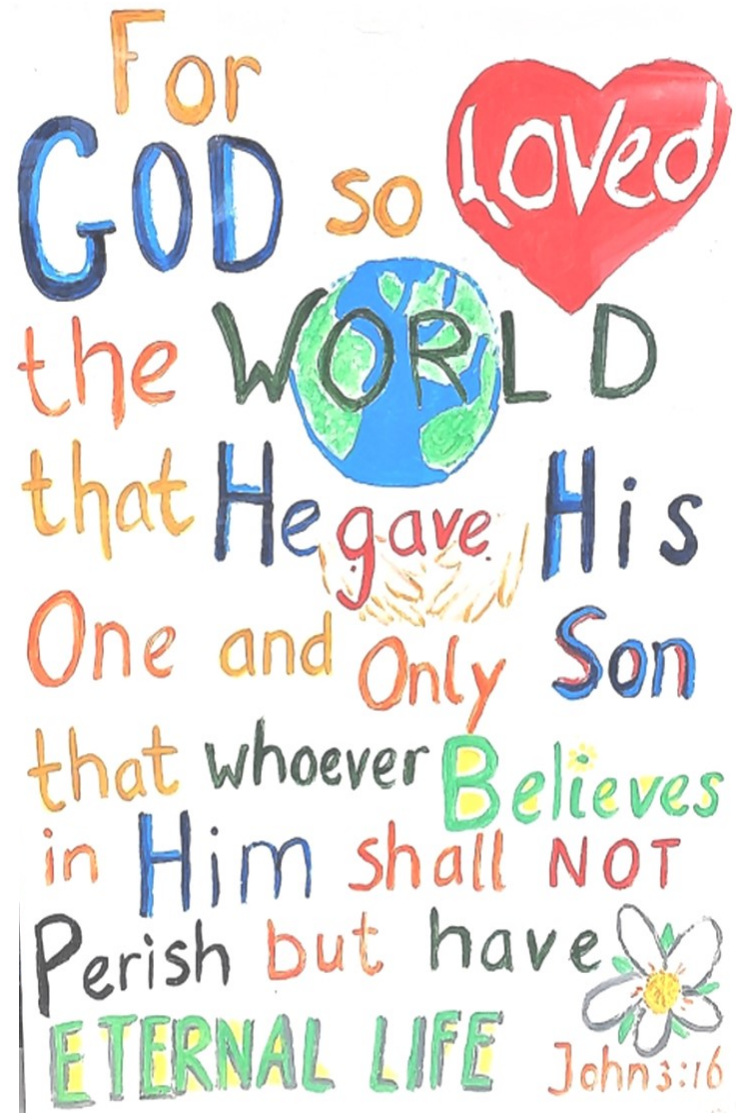 For
GOD so Loved
the WORLD
that He gave His
One and Only Son
that whoever Believes
in Him shall NOT
Perish but have
ETERNAL LIFE
John 3:16